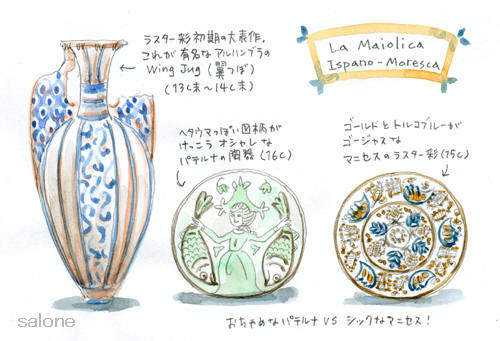 ラスター彩初期の大表作。
これが有名なアルハンブラの
Wing Jug (翼つぼ)
(13C末〜14C末)
La Maiolica
Ispano-Moresca
ヘタウマっぽい図柄が
けっこうオシャレな
パテルナの陶器(16C)
ゴールドとトルコブルーが
ゴージャスな
マニセスのラスター彩(15C)
おちゃめなパテルナ VS シックなマニセス!
salone